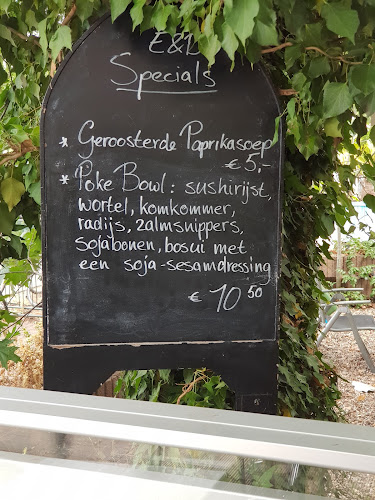 E&D
Specials
* Geroosterde Paprikasoep
€ 5,-
* Poke Bowl: sushirijst,
wortel, komkommer,
radijs, zalmsnippers,
sojabonen, bosui met
een soja-sesamdressing
€ 10 50